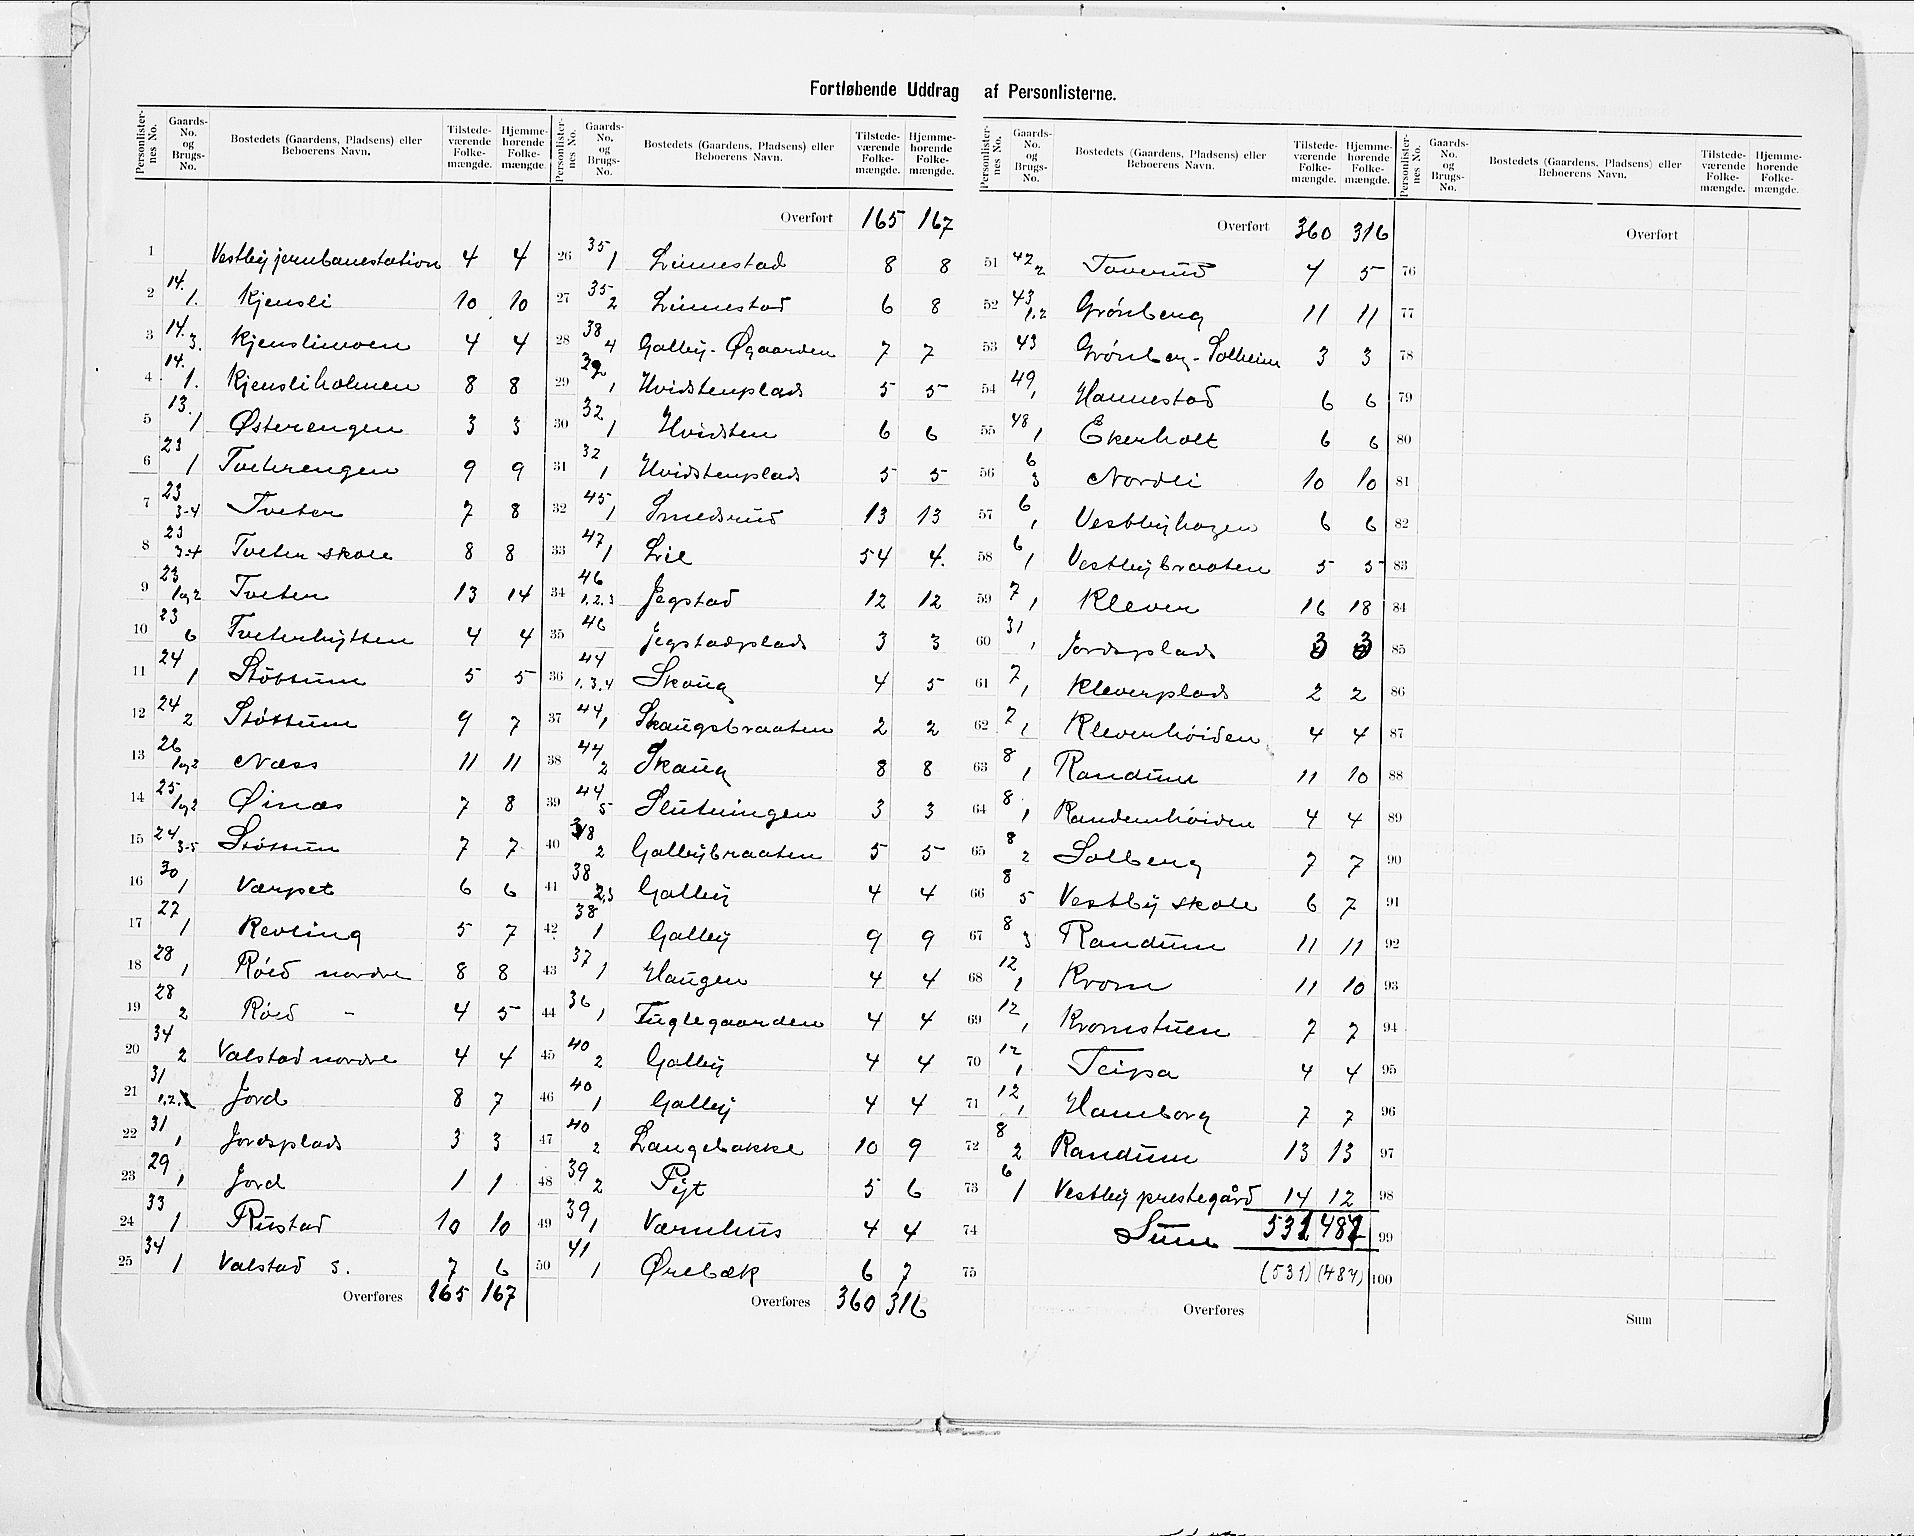 Fortløbende Uddrag af Personlisterne.
Personlisternes No. | Gaards-No. og Brugs-No. | Bostedets (Gaardens, Pladsens) eller Beboerens Navn. | Tilstedeværende Folkemængde. | Hjemmehørende Folkemængde.
1 Vestby jernbanestation 4 4
2 14. 1. Kjensli 10 10
3 14. 3. Kjenslimoen 4 4
4 14. 1. Kjensliholmen 8 8
5 13. 1 Østerengen 3 3
6 23 1 Tveterengen 9 9
7 23 3-4 Tveter 7 8
8 23 3-4 Tveter skole 8 8
9 23 1og2 Tveter 13 14
10 23 6 Tveterhytten 4 4
11 24 1 Støttum 5 5
12 24 2 Støttum 9 7
13 26 1og2 Næss 11 11
14 25 1og2 Øinæs 7 8
15 24 3-5 Støttum 7 7
16 30 1 Værpet 6 6
17 27 1 Revling 5 7
18 28 1 Röed nordre 8 8
19 28 2 Röed - 4 5
20 34 2 Valstad nordre 4 4
21 31 1.2. Jord 8 7
22 31 1 Jordsplads 3 3
23 29 1 Jord 1 1
24 33 1 Rustad 10 10
25 34 1 Valstad s. 7 6
Overføres 165 167
Personlisternes No. | Gaards-No. og Brugs-No. | Bostedets (Gaardens, Pladsens) eller Beboerens Navn. | Tilstedeværende Folkemængde. | Hjemmehørende Folkemængde.
Overført 165 167
26 35 1 Linnestad 8 8
27 35 2 Linnestad 6 8
28 38 4 Galby-Øgaarden 7 7
29 32 1 Hvidstenplads 5 5
30 32 1 Hvidsten 6 6
31 32 1 Hvidstenplads 5 5
32 45 1 Smedsrud 13 13
33 47 1 Lie 54 4.
34 46 1.2.3 Jegstad 12 12
35 46 Jegstadplads 3 3
36 44 1.3.4 Skaug 4 5
37 44 1 Skaugsbraaten 2 2
38 44 2 Skaug 8 8
39 44 5 Slutningen 3 3
40 38 2 Galbybraaten 5 5
41 38 2,3 Galby 4 4
42 38 1 Galby 9 9
43 37 1 Haugen 4 4
44 36 1 Fuglegaarden 4 4
45 40 2 Galby 4 4
46 40 1 Galby 4 4
47 40 2 Langebakke 10 9
48 39 2 Pyt 5 6
49 39 1 Værnhus 4 4
50 41 1 Ørebæk 6 7
Overføres 360 316
Personlisternes No. | Gaards-No. og Brugs-No. | Bostedets (Gaardens, Pladsens) eller Beboerens Navn. | Tilstedeværende Folkemængde. | Hjemmehørende Folkemængde.
Overført 360 316
51 42 2 Taverud 4 5
52 43 1.2 Grönberg 11 11
53 43 Grönberg-Solheim 3 3
54 49 1 Hannestad 6 6
55 48 1 Ekerholt 6 6
56 6 3 Nordli 10 10
57 6 1 Vestbyhagen 6 6
58 6 1 Vestbybraaten 5 5
59 7 1 Klever 16 18
60 31 1 Jordsplads 3 3
61 7 1 Kleverplads 2 2
62 7 1 Kleverhöiden 4 4
63 8 1 Randum 11 10
64 8 1 Randemhöiden 4 4
65 8 2 Solberg 7 7
66 8 5 Vestby skole 6 7
67 8 3 Randum 11 11
68 12 1 Krom 11 10
69 12 1 Kromstuen 7 7
70 12 1 Teipa 4 4
71 12 1 Hamborg 7 7
72 8 2 Randum 13 13
73 6 1 Vestby prestegård 14 12
74 Sum 531 487
75 (531) (487)
Overføres
Personlisternes No. | Gaards-No. og Brugs-No. | Bostedets (Gaardens, Pladsens) eller Beboerens Navn. | Tilstedeværende Folkemængde. | Hjemmehørende Folkemængde.
Overført
76
77
78
79
80
81
82
83
84
85
86
87
88
89
90
91
92
93
94
95
96
97
98
99
100
Sum